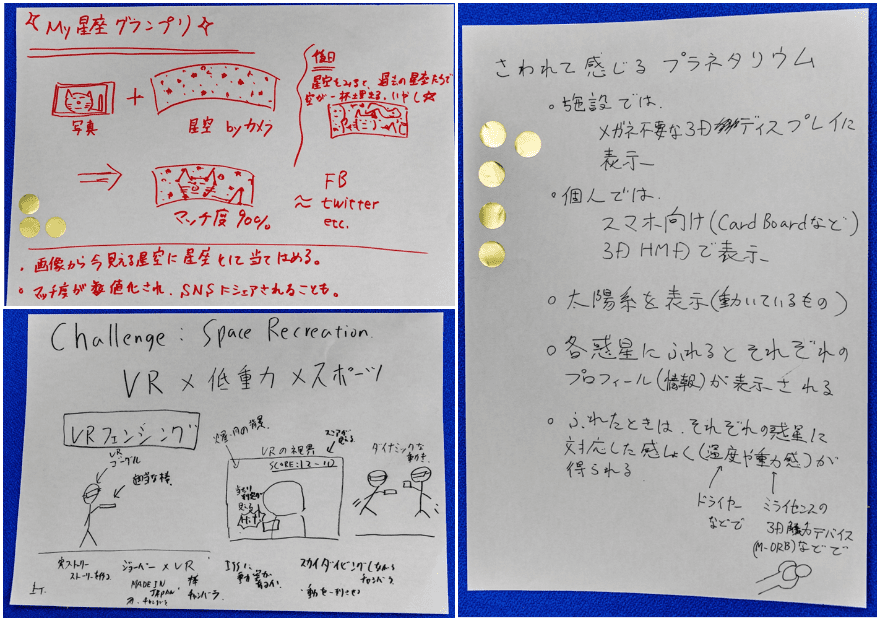 ☆ My 星座グランプリ ☆
写真
+
星空 byカメラ
後日
星空をみると、過去の星座たちで
空が一杯
⇒
マッチ度90%
≈
FB
twitter
etc.
・画像から今見える星空に星座として当てはめる。
・マッチ度が数値化され、SNSにシェアされることも。
Challenge : Space Recreation.
VR × 低重力 × スポーツ
VRフェンシング
VR
ゴーグル
適当な棒
VRの視界
SCORE:12-12
ダイナミックな
動き
× VR
MADE IN
JAPAN
チャンバラ
スカイダイビングしながら
チャンバラ
さわれて感じる プラネタリウム
○施設では、
メガネ不要な3Dディスプレイに
表示
○個人では、
スマホ向け(Card Boardなど)
3D HMDで表示
○太陽系を表示(動いているもの)
○各惑星にふれるとそれぞれの
プロフィール(情報)が表示される
○ふれたときは、それぞれの惑星に
対応した感しょく(温度や重力感)が
得られる
ドライヤー
などで
ミライセンスの
3D触力デバイス
(M-ORB)などで